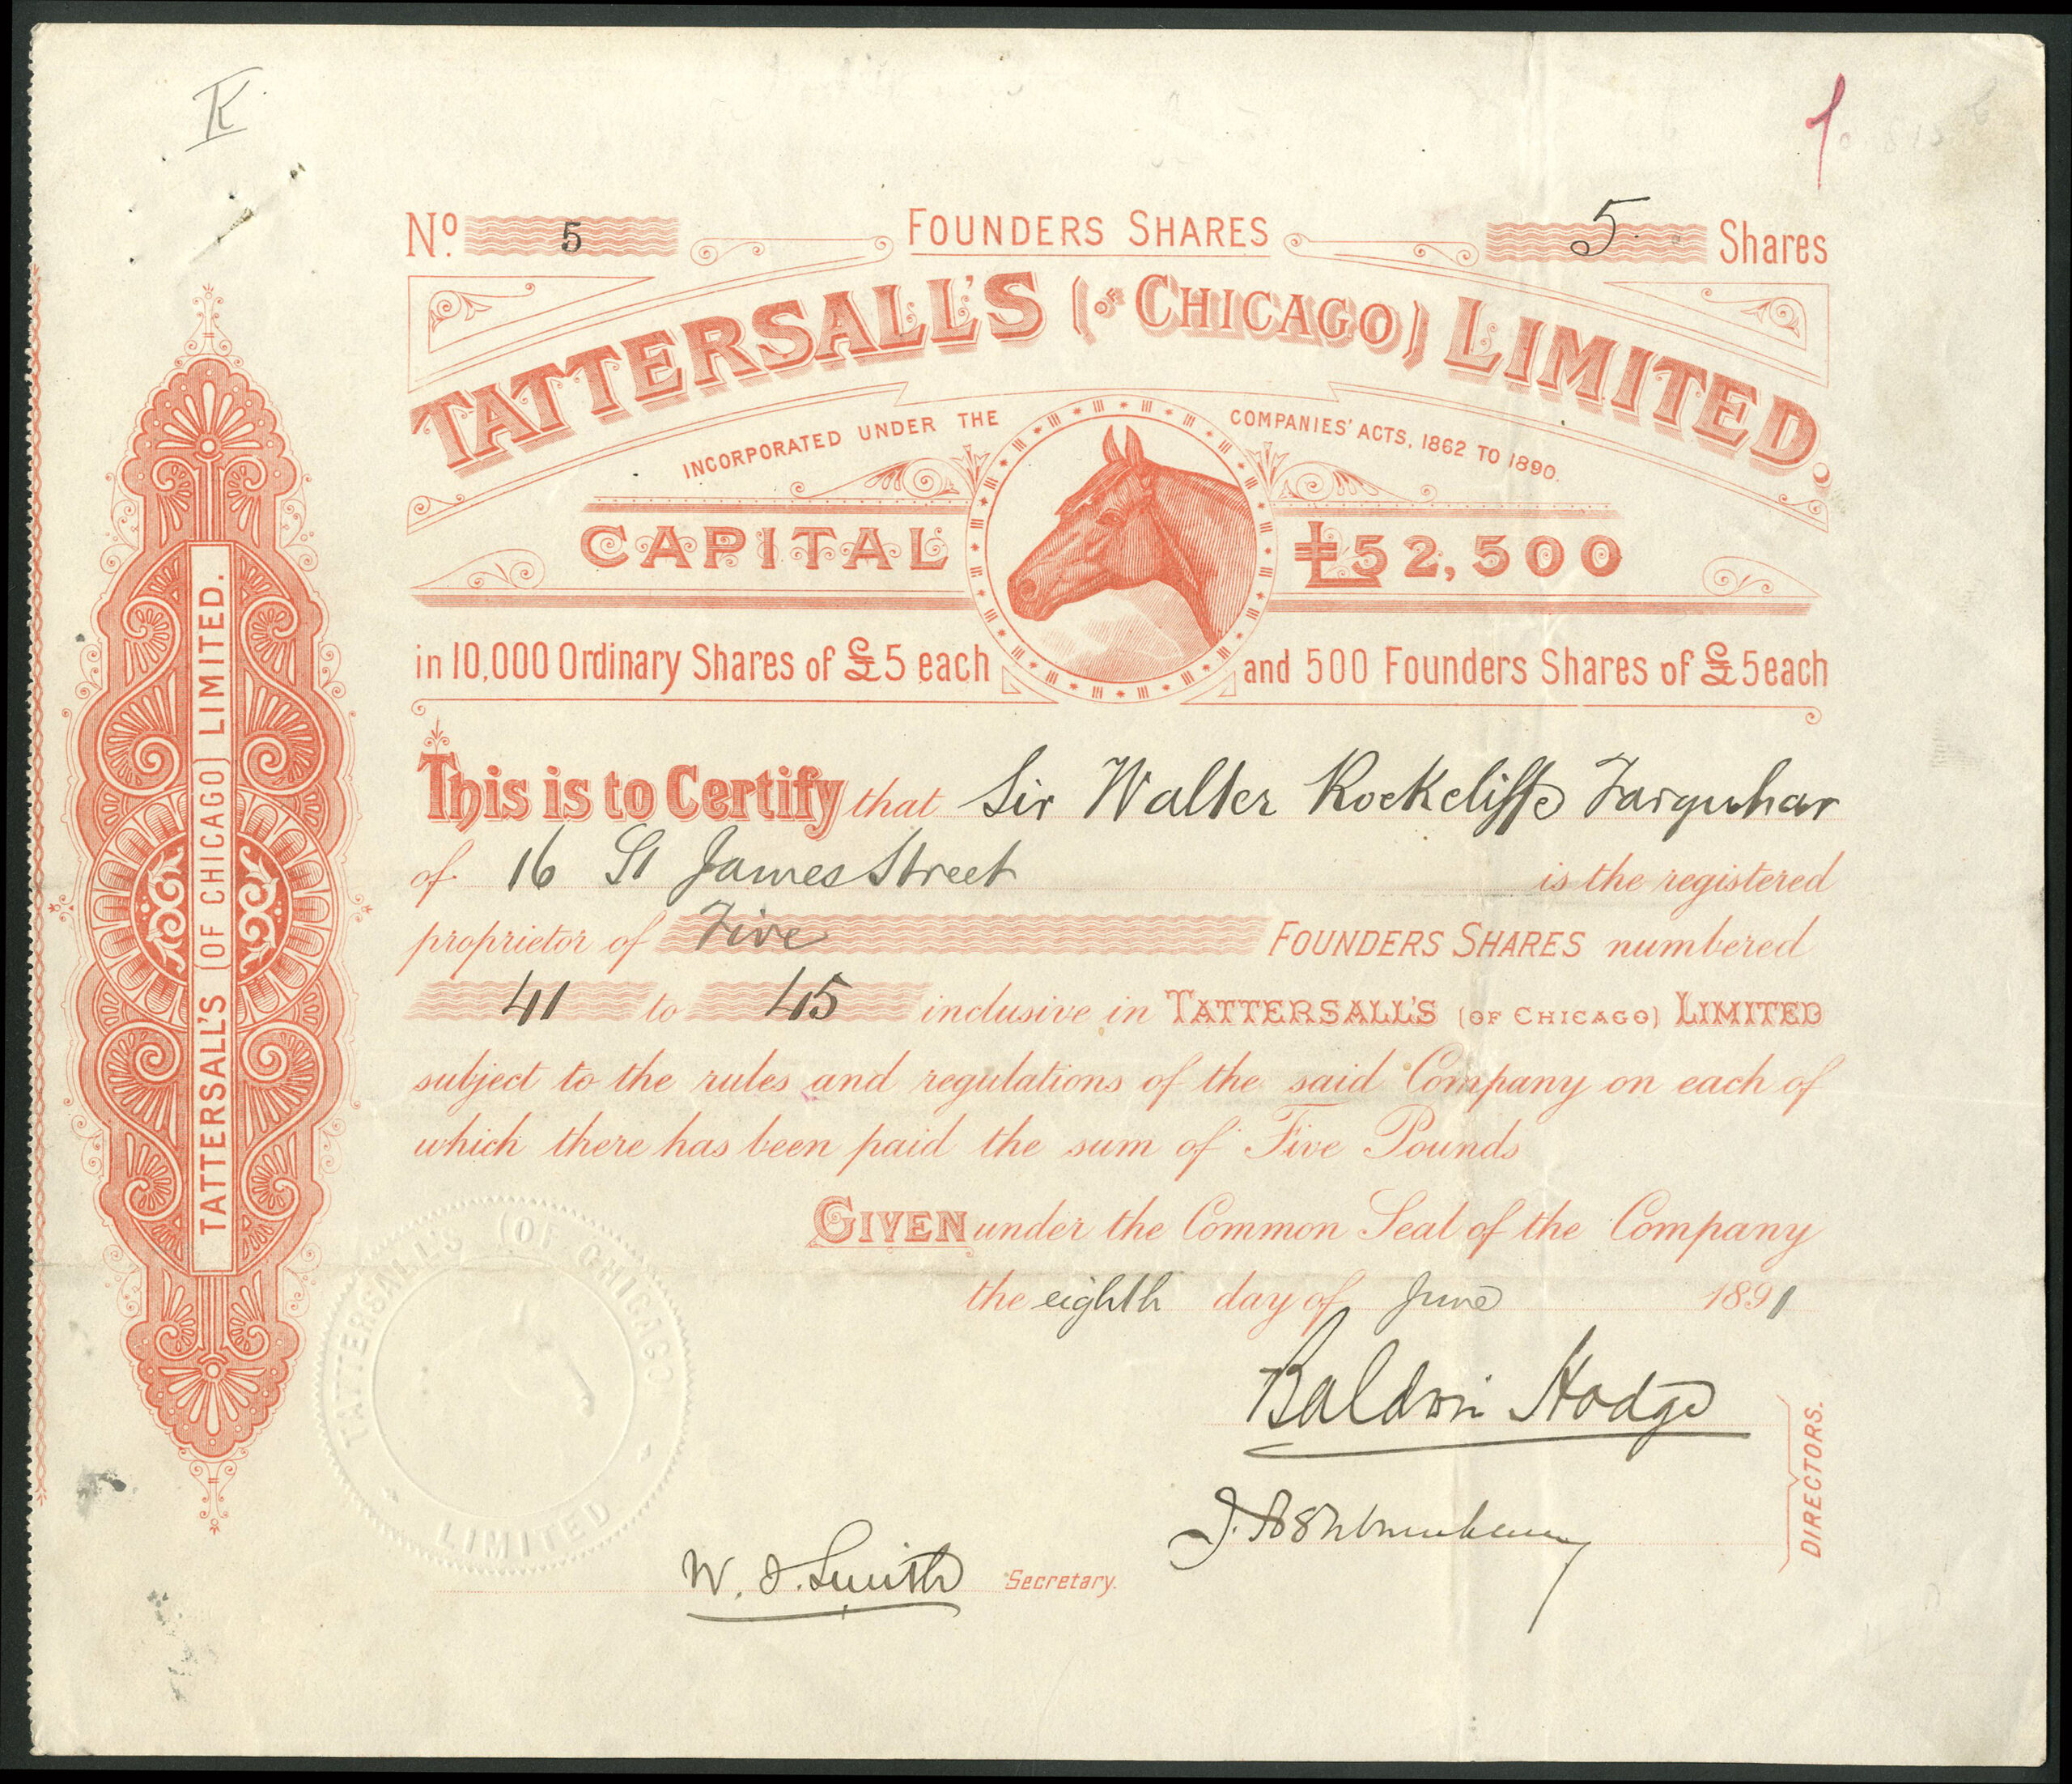 K
1
No. 5 FOUNDERS SHARES 5 Shares
TATTERSALL'S (OF CHICAGO) LIMITED.
INCORPORATED UNDER THE COMPANIES' ACTS, 1862 TO 1890.
CAPITAL £52,500
in 10,000 Ordinary Shares of £5 each and 500 Founders Shares of £5 each
This is to Certify that Sir Walter Rockcliffe Farquhar
of 16 St James Street is the registered
proprietor of Five FOUNDERS SHARES numbered
41 to 45 inclusive in TATTERSALL'S (OF CHICAGO) LIMITED
subject to the rules and regulations of the said Company on each of
which there has been paid the sum of Five Pounds
GIVEN under the Common Seal of the Company
the eighth day of June 1891
Baldwin Hodge
DIRECTORS.
W. J. Smith Secretary.
TATTERSALL'S (OF CHICAGO) LIMITED.
TATTERSALL'S (OF CHICAGO) LIMITED